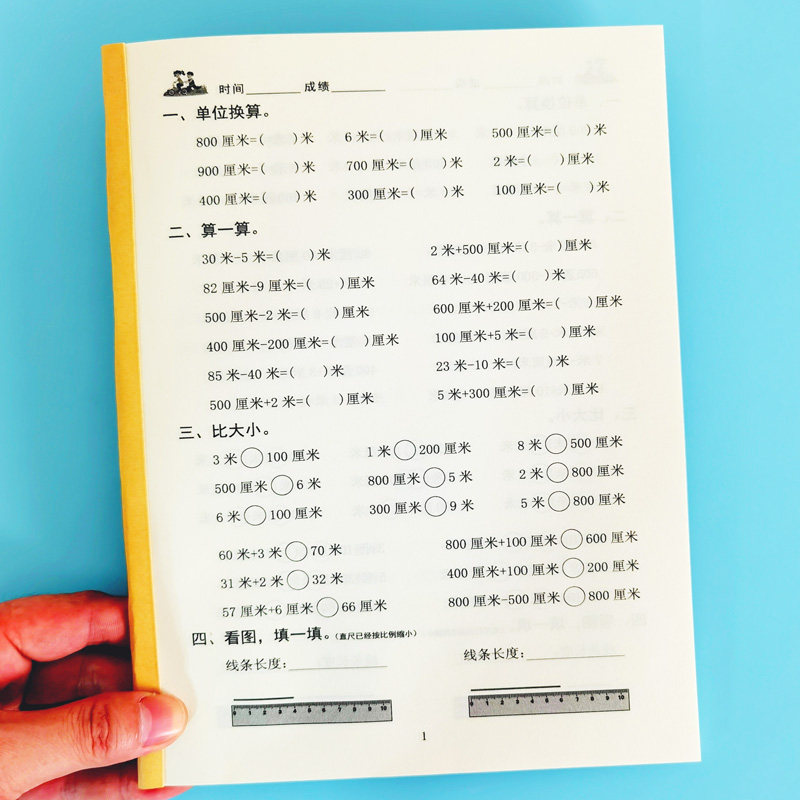 时间______ 成绩______
一、单位换算。
800 厘米=( )米 6 米=( )厘米 500 厘米=( )米
900 厘米=( )米 700 厘米=( )米 2 米=( )厘米
400 厘米=( )米 300 厘米=( )米 100 厘米=( )米
二、算一算。
30 米-5 米=( )米 2 米+500 厘米=( )厘米
82 厘米-9 厘米=( )厘米 64 米-40 米=( )米
500 厘米-2 米=( )厘米 600 厘米+200 厘米=( )厘米
400 厘米-200 厘米=( )厘米 100 厘米+5 米=( )厘米
85 米-40 米=( )米 23 米-10 米=( )米
500 厘米+2 米=( )厘米 5 米+300 厘米=( )厘米
三、比大小。
3 米○100 厘米 1 米○200 厘米 8 米○500 厘米
500 厘米○6 米 800 厘米○5 米 2 米○800 厘米
6 米○100 厘米 300 厘米○9 米 5 米○800 厘米
60 米+3 米○70 米 800 厘米+100 厘米○600 厘米
31 米+2 米○32 米 400 厘米+100 厘米○200 厘米
57 厘米+6 厘米○66 厘米 800 厘米-500 厘米○800 厘米
四、看图，填一填。(直尺已经按比例缩小)
线条长度：______ 线条长度：______
0 1 2 3 4 5 6 7 8 9 10 0 1 2 3 4 5 6 7 8 9 10
1